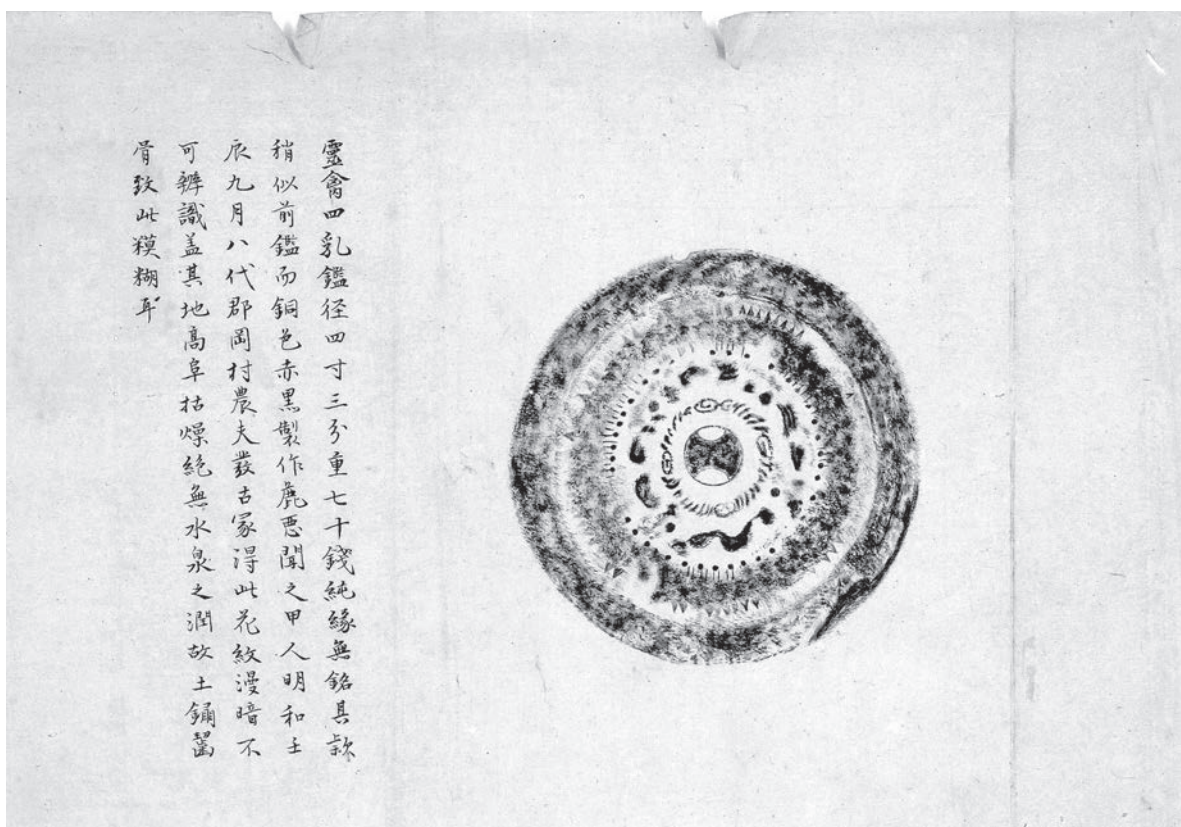 靈禽四乳鑑径四寸三分重七十錢純緣無銘其款
稍似前鑑而銅色赤黒製作麁悪聞之甲人明和壬
辰九月八代郡岡村農夫發古冢得此花紋漫暗不
可辨識盖其地高阜枯燥絶無水泉之潤故土銹齧
骨致此糢糊耳